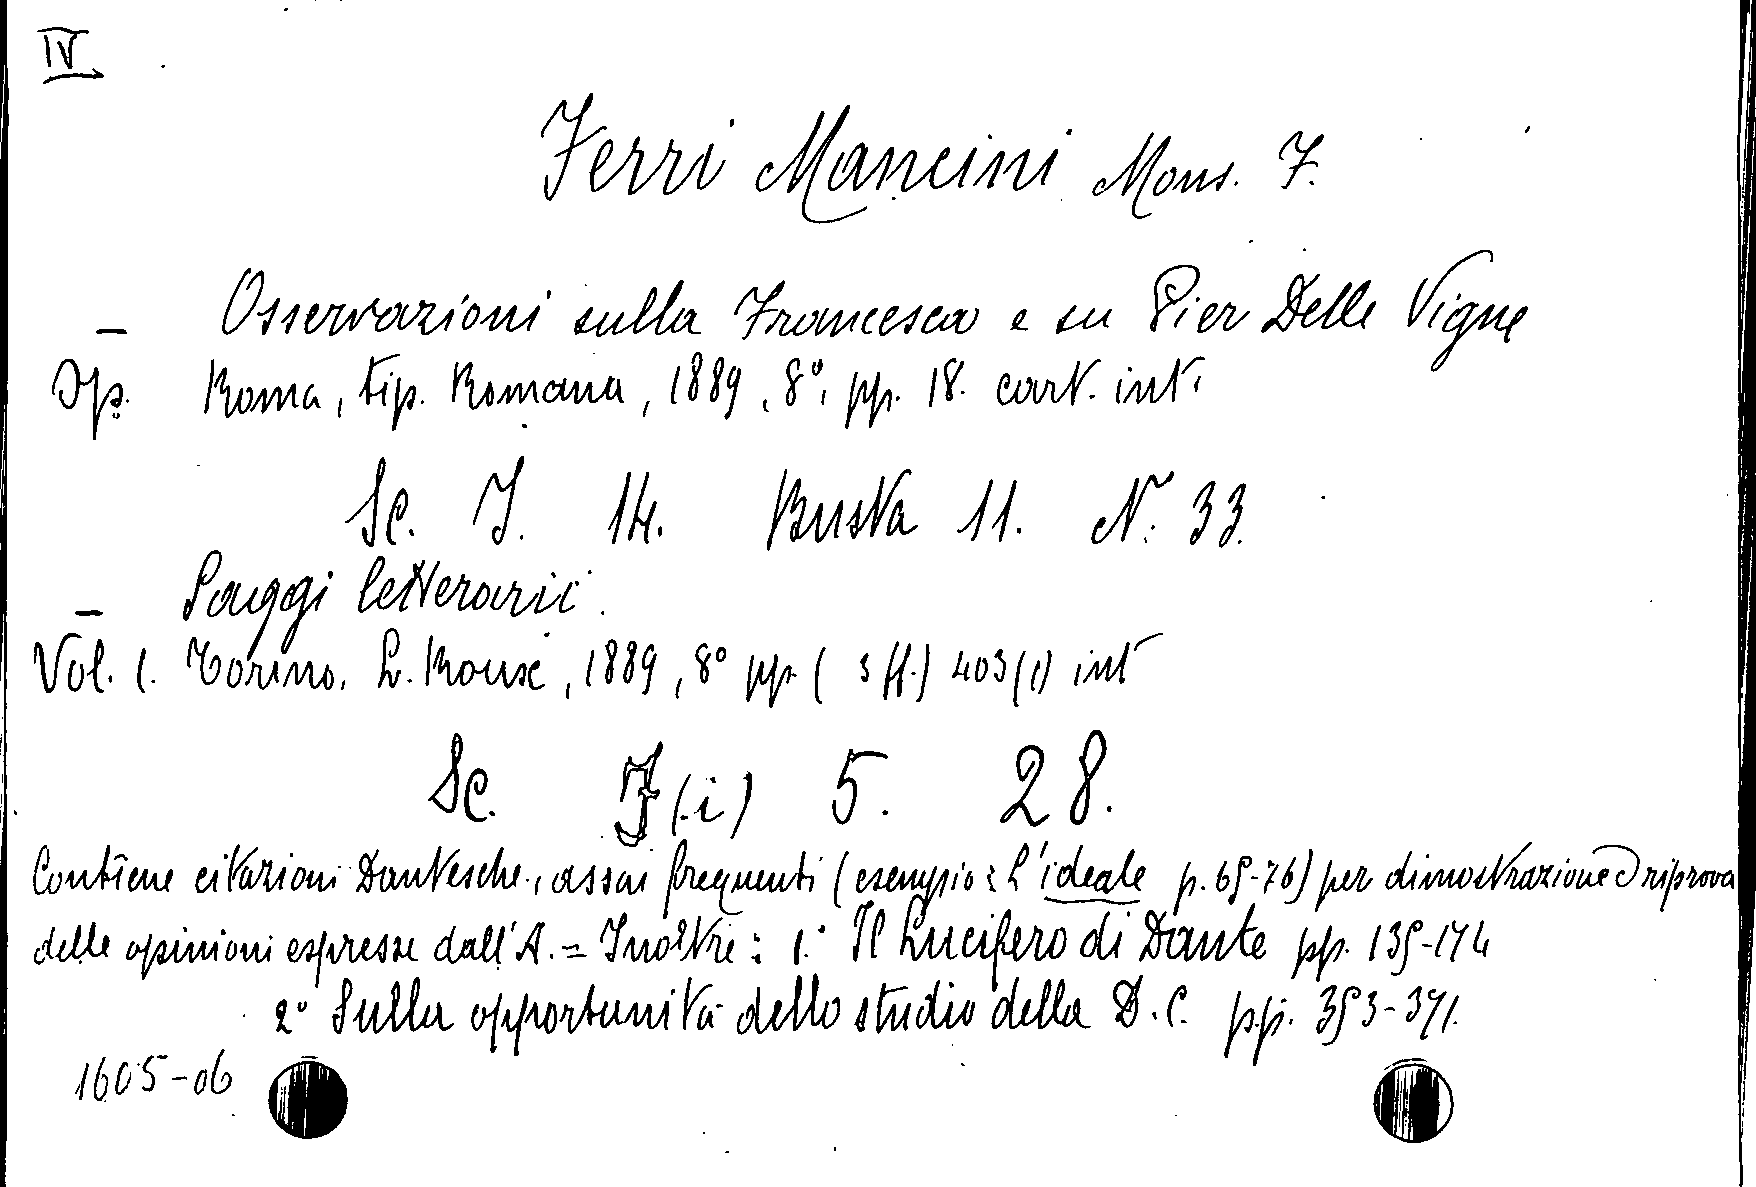 IV
Ferri Mancini Mons. F.
– Osservazioni sulla Francesca e su Pier Delle Vigne
Op. Roma, tip. Romana, 1889, 8°, pp. 18. cart. int.
Sc. I. 14. Busta 11. N. 33.
– Saggi letterarii.
Vol. 1. Torino. L. Roux, 1889, 8° pp. (3 ff.) 403 (1) int
Sc. F(i) 5. 28.
Contiene citazioni Dantesche, assai frequenti (esempio: L'ideale p. 65-76) per dimostrazione o riprova
delle opinioni espresse dall'A. = Inoltre: 1.° Il Lucifero di Dante pp. 135-174
2° Sulla opportunità dello studio della D. C. pp. 353-371.
1605-06